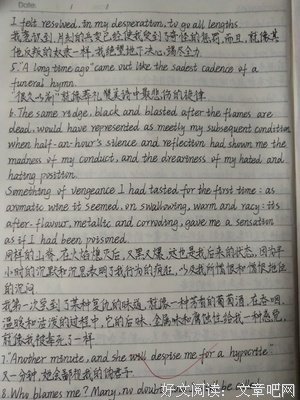 Date:
I felt resolved, in my desperation, to go all lengths.
我意识到,片刻的兵变已经使我受到了奇怪的惩罚,而且,就像其
他反叛的奴隶一样,我绝望地下决心,竭尽全力.
5."A long time ago" came out like the sadest cadence of a
funeral hymn.
"很久以前"就像葬礼赞美诗中最悲伤的旋律
6. The same ridge, black and blasted after the flames are
dead, would have represented as meetly my subsequent condition
when half-an-hour's silence and reflection had shown me the
madness of my conduct, and the dreariness of my hated and
hating position.
Something of vengeance I had tasted for the first time: as
aromatic wine it seemed, on swallowing, warm and racy: its
after-flavour, metallic and corroding, gave me a sensation
as if I had been poisoned.
同样的山脊,在火焰熄灭后,又黑又爆,这也是我后来的状态,因为半
小时的沉默和沉思表明了我行为的疯狂,以及我所憎恨和憎恨地位
的沉闷
我第一次受到了某种复仇的味道,就像一种芳香的葡萄酒,在吞咽,
温暖和活泼的过程中,它的后味,金属味和腐蚀性给我一种感觉,
就像我被毒死了一样
7."Another minute, and she will despise me for a hypocrite"
又一分钟,她会鄙视我的伪君子
8. Why blames me? Many, no doubt be
好文阅读:文章吧网